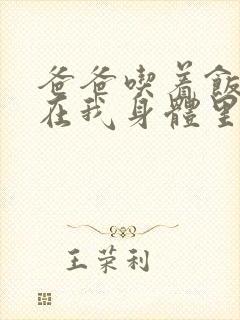 爸爸喫着飯
在我身體里
王荣利